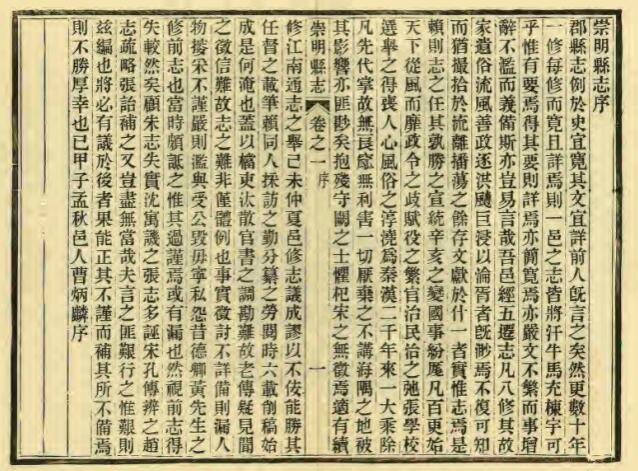 崇明縣志序
郡縣志例於史宜寬其文宜詳前人旣言之矣然更數十年
一修每修而寬且詳焉則一邑之志皆將汗牛馬充棟宇可
乎惟有要焉得其要則詳焉亦簡寬焉亦嚴文不繁而事增
辭不濫而義備斯亦豈易言哉吾邑經五遷志凡八修其故
家遺俗流風善政逐洪颷巨浸以淪胥者旣渺焉不復可知
而猶撮拾於流離播蕩之餘存文獻於什一者實惟志焉是
賴則志之任其孰勝之宣統辛亥之變國事紛厖凡百更始
天下從風而靡政令之歧賦役之繁官治民治之弛張學校
選舉之得喪人心風俗之淳澆爲秦漢二千年來一大乘除
凡先代掌故無良窳無利害一切厭棄之不講海隅之地被
其影響亦匪尠矣抱殘守闕之士懼杞宋之無徵焉適有續
崇明縣志 卷之一 序 一
修江南通志之舉己未仲夏邑修志議成謬以不佞能勝其
任督之載筆賴同人採訪之勤分纂之勞閱時六載創稿始
成是何淹也蓋以檔吏汰散官書之調勘難故老傳疑見聞
之徵信難故志之難非僅體例也事實徵討不詳備則漏人
物摭采不謹嚴則濫與受公毀毋寧私怨昔德卿黃先生之
修前志也當時頗詆之惟其過謹焉或有漏也然視前志得
失較然矣顧朱志失實沈寓譏之張志多誣宋孔傅辨之趙
志疏略張詒補之又豈盡無當哉夫言之匪艱行之惟艱則
玆編也將必有議於後者果能正其不謹而補其所不備焉
則不勝厚幸也已甲子孟秋邑人曹炳麟序